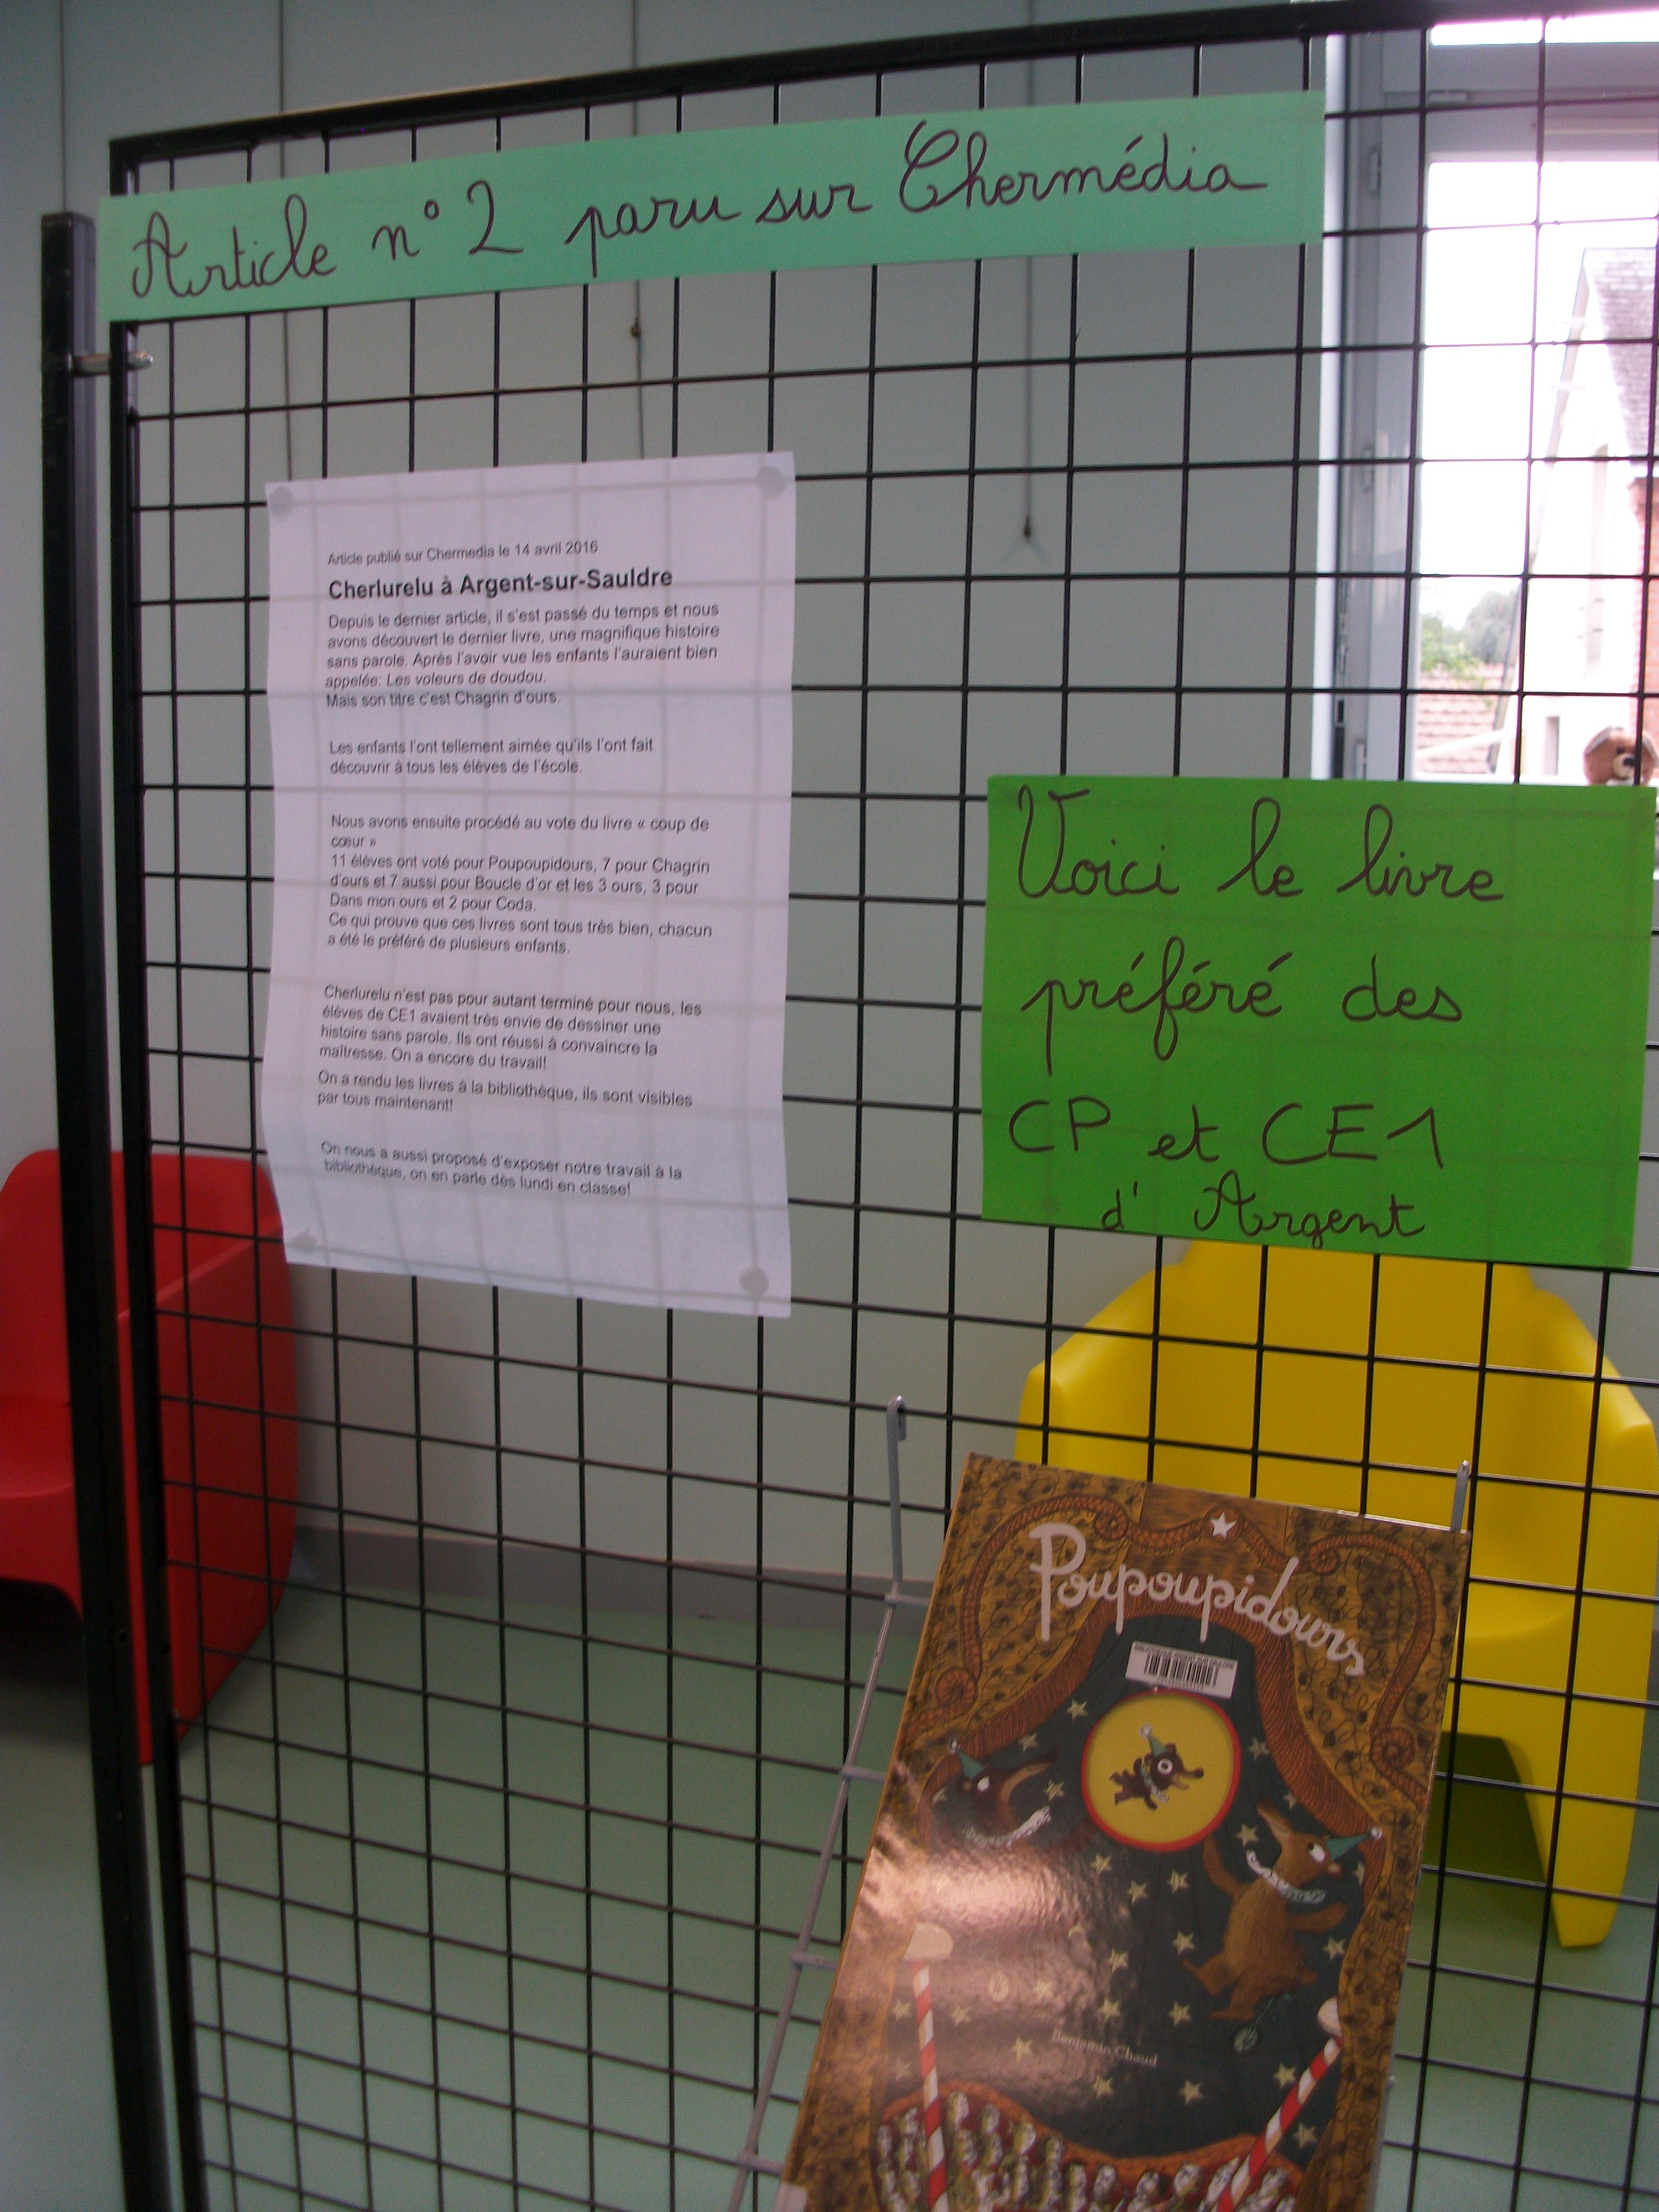 Article n° 2 paru sur Chermédia
Article publié sur Chermedia le 14 avril 2016
Cherlurelu à Argent-sur-Sauldre
Depuis le dernier article, il s'est passé du temps et nous
avons découvert le dernier livre, une magnifique histoire
sans parole. Après l'avoir vue les enfants l'auraient bien
appelée: Les voleurs de doudou.
Mais son titre c'est Chagrin d'ours.
Les enfants l'ont tellement aimée qu'ils l'ont fait
découvrir à tous les élèves de l'école.
Nous avons ensuite procédé au vote du livre « coup de
cœur »
11 élèves ont voté pour Poupoupidours, 7 pour Chagrin
d'ours et 7 aussi pour Boucle d'or et les 3 ours, 3 pour
Dans mon ours et 2 pour Coda.
Ce qui prouve que ces livres sont tous très bien, chacun
a été le préféré de plusieurs enfants.
Cherlurelu n'est pas pour autant terminé pour nous, les
élèves de CE1 avaient très envie de dessiner une
histoire sans parole. Ils ont réussi à convaincre la
maîtresse. On a encore du travail!
On a rendu les livres à la bibliothèque, ils sont visibles
par tous maintenant!
On nous a aussi proposé d'exposer notre travail à la
bibliothèque, on en parle dès lundi en classe!
Voici le livre
préféré des
CP et CE1
d'Argent
Poupoupidours
Benjamin Chaud